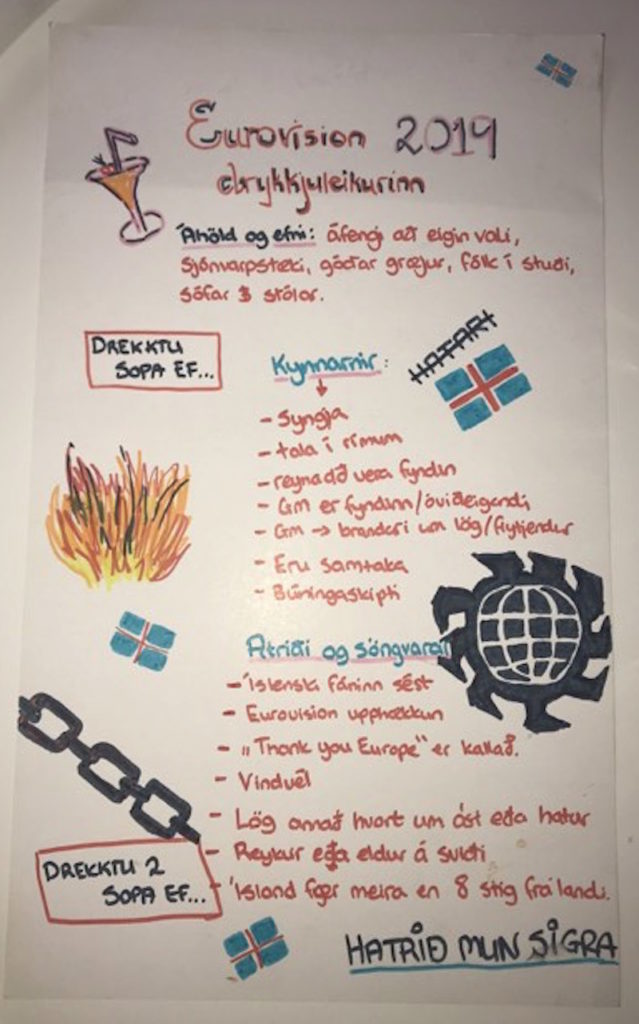 Eurovision 2019
drykkjuleikurinn
Áhöld og efni: áfengi að eigin vali,
sjónvarpstæki, góðar græjur, fólk í stuði,
sófar & stólar.
DREKKTU
SOPA EF...
Kynnarnir:
HATARI
- Syngja
- tala í rímum
- reyna að vera fyndin
- GM er fyndinn/óviðeigandi
- GM → brandari um lög/flytjendur
- Eru samtaka
- Búningaskipti
Atriði og söngvarar
- Íslenski fáninn sést
- Eurovision upphækkun
- „Thank you Europe" er kallað.
- Vindvél
- Lög annað hvort um ást eða hatur
- Reykur eða eldur á sviði
DREKKTU 2
SOPA EF...
- Ísland fær meira en 8 stig frá landi.
HATRIÐ MUN SIGRA